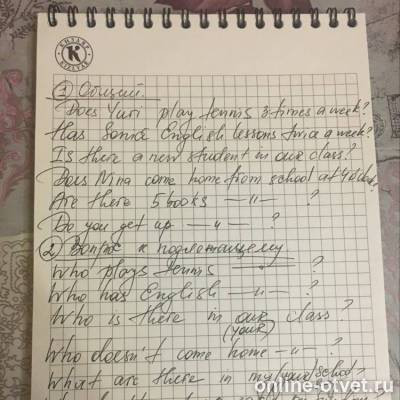 К
① Общий.
Does Yuri play tennis 3 times a week?
Has Sonia English lessons twice a week?
Is there a new student in our class?
Does Nina come home from school at 4 o'clock?
Are there 5 books —"— ?
Do you get up —"— ?
② Вопрос к подлежащему
Who plays tennis —"— ?
Who has English —"— ?
Who is there in our class?
(your)
Who doesn't come home —"— ?
What are there in my/your/school?
online-otvet.ru